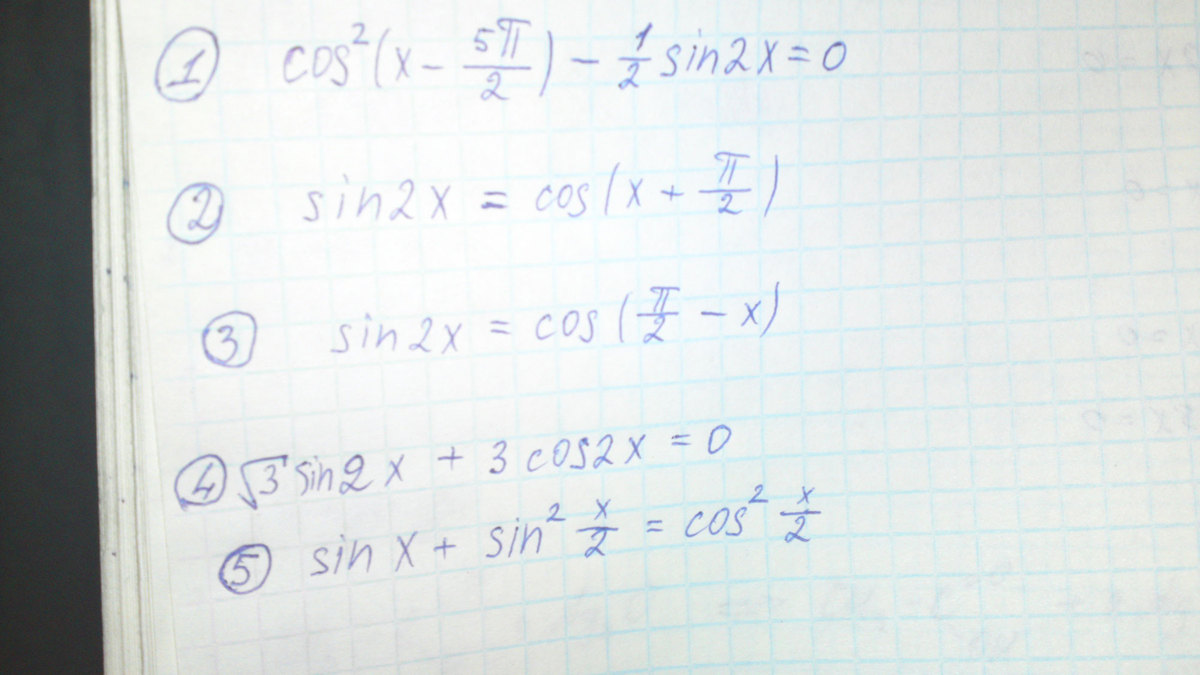 ① cos²(x - 5π/2) - 1/2 sin2x = 0
② sin2x = cos(x + π/2)
③ sin2x = cos(π/2 - x)
④ √3 sin2x + 3 cos2x = 0
⑤ sin x + sin² x/2 = cos² x/2